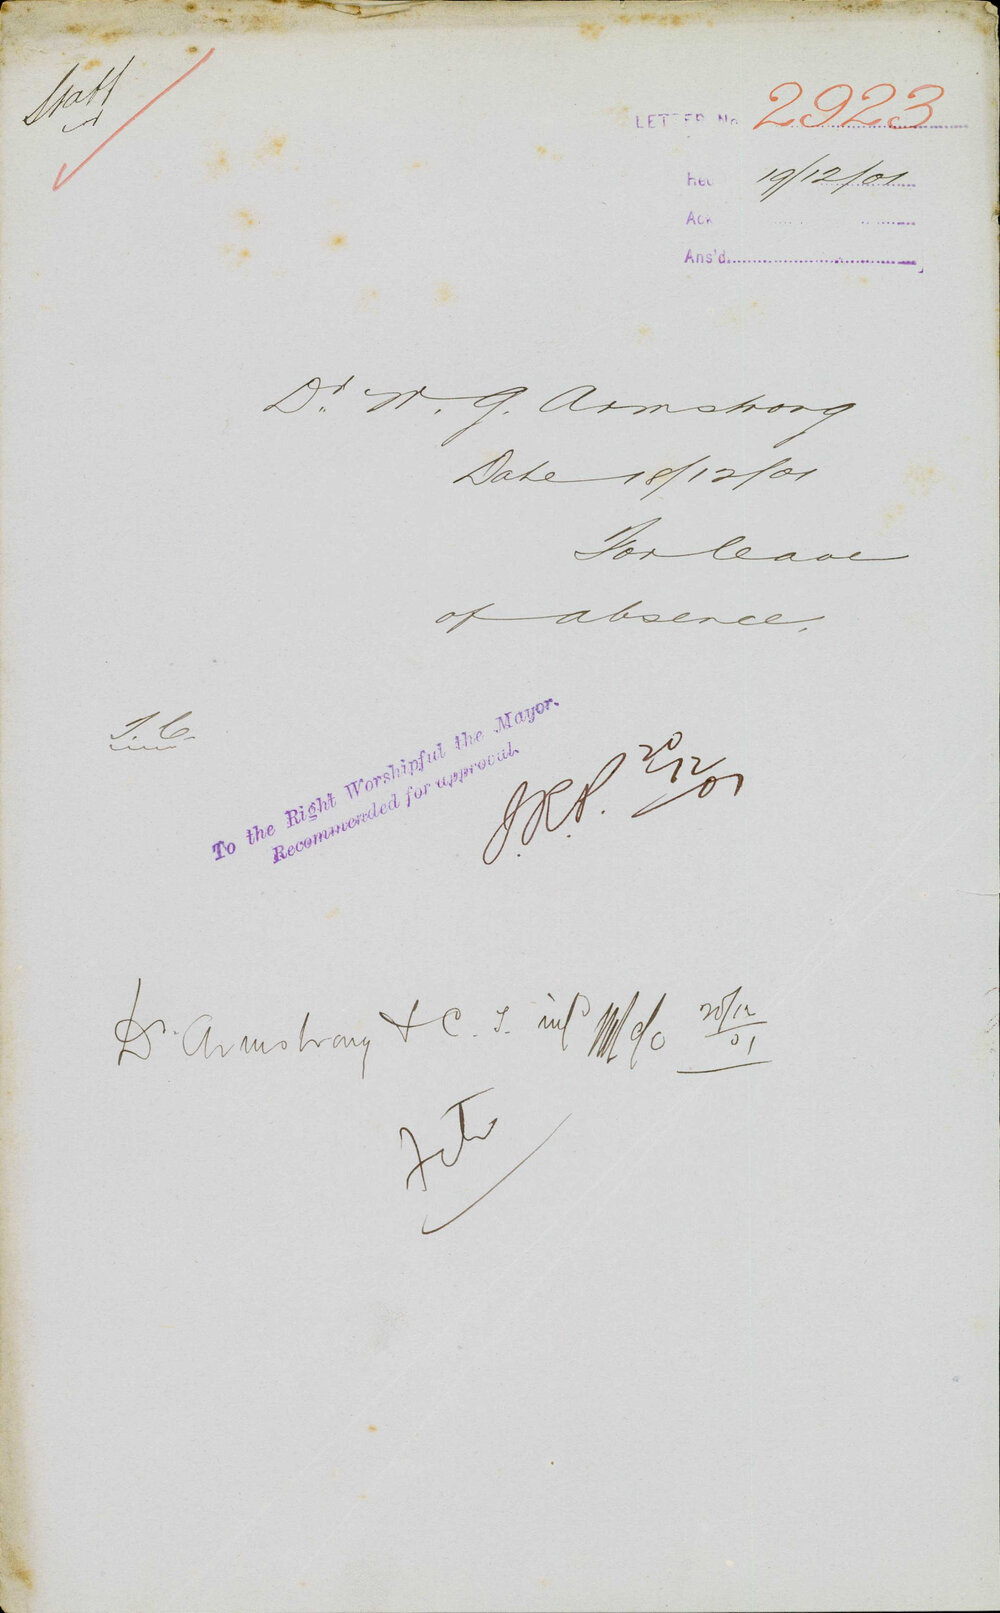 Staff
LETTER No 2923
Rec 19/12/01
Ack
Ans'd
Dr. W. G. Armstrong
Date 18/12/01
For leave
of absence.
T.C.
To the Right Worshipful the Mayor.
Recommended for approval.
20/12/01
Dr. Armstrong & C. T. infd 20/12/01